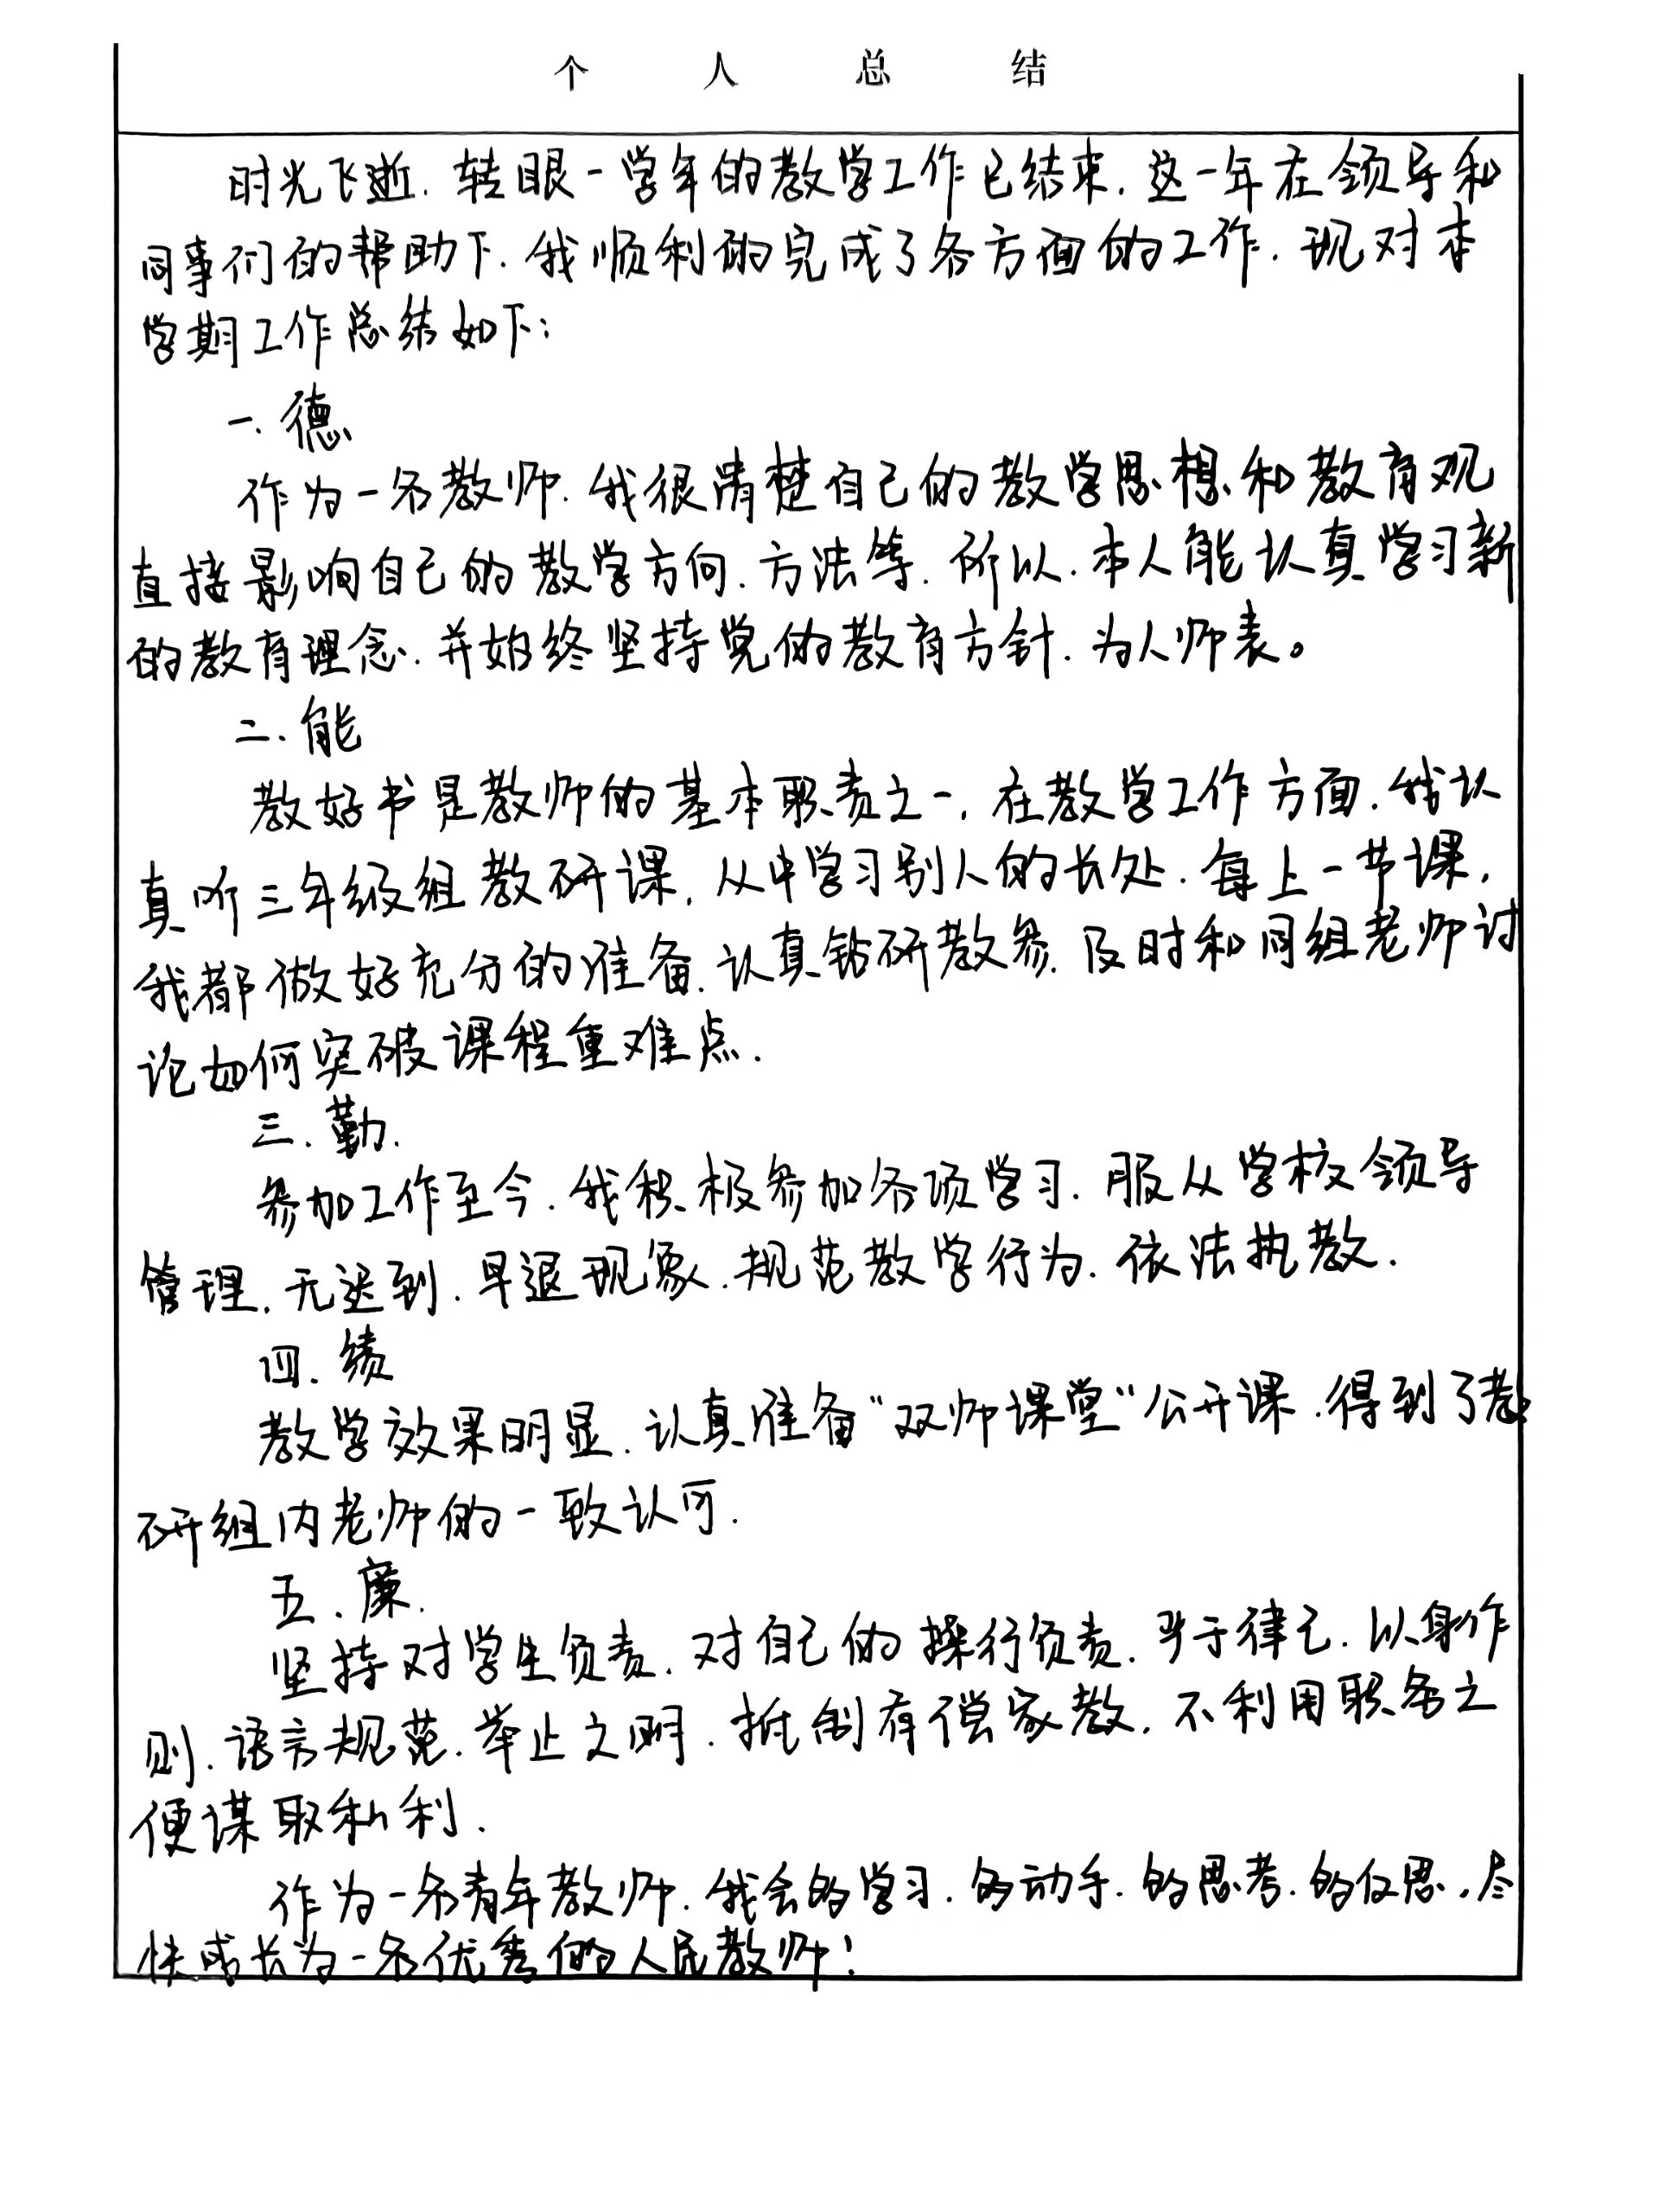 个人总结
时光飞逝.转眼一学年的教学工作已结束.这一年在领导和
同事们的帮助下.我顺利的完成了各方面的工作.现对本
学期工作总结如下:
一.德
作为一名教师.我很清楚自己的教学思想和教育观
直接影响自己的教学方向.方法等.所以.本人能认真学习新
的教育理念.并始终坚持党的教育方针.为人师表。
二.能
教好书是教师的基本职责之一,在教学工作方面.我认
真听三年级组教研课,从中学习别人的长处.每上一节课,
我都做好充分的准备.认真钻研教参.及时和同组老师讨
论如何突破课程重难点.
三.勤.
参加工作至今.我积极参加各项学习.服从学校领导
管理.无迟到.早退现象.规范教学行为.依法执教.
四.绩
教学效果明显.认真准备“双师课堂”公开课.得到了教
研组内老师的一致认可.
五.廉.
坚持对学生负责.对自己的操行负责.严于律己.以身作
则.语言规范.举止文明.抵制有偿家教.不利用职务之
便谋取私利.
作为一名青年教师.我会的学习.动手.的思考.的反思.尽
快成长为一名优秀的人民教师!